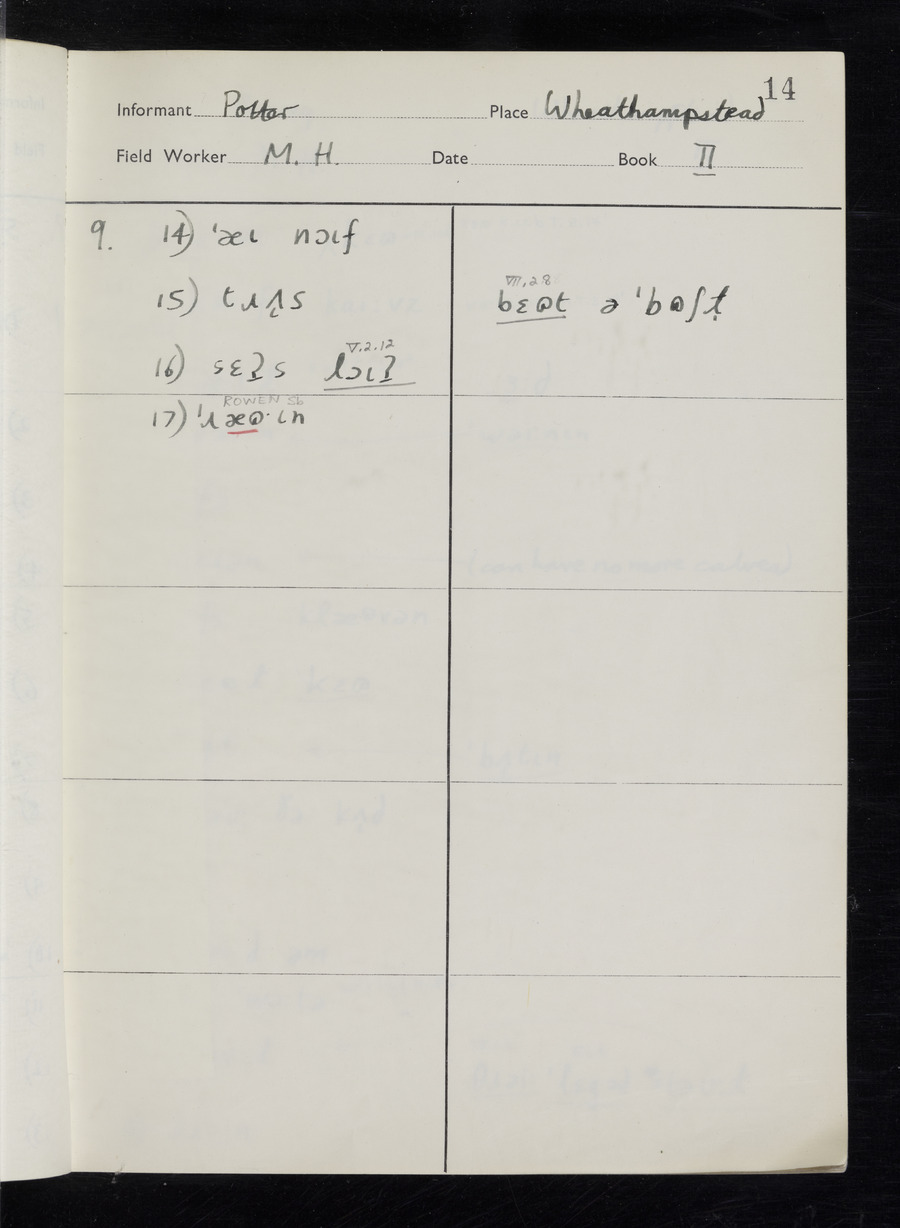 14
Informant Potter Place Wheathampstead
Field Worker M. H. Date Book II
9. 14) ˈæɪ nɔɪf
15) tɹʌ̨s
VIII, 2 8
bɛɷt ə ˈbɷʃt̩
V. 2. 12
16) sɛʔs lɔɪʔ
ROWEN Sb
17) ˈɹæɷ·ɪn